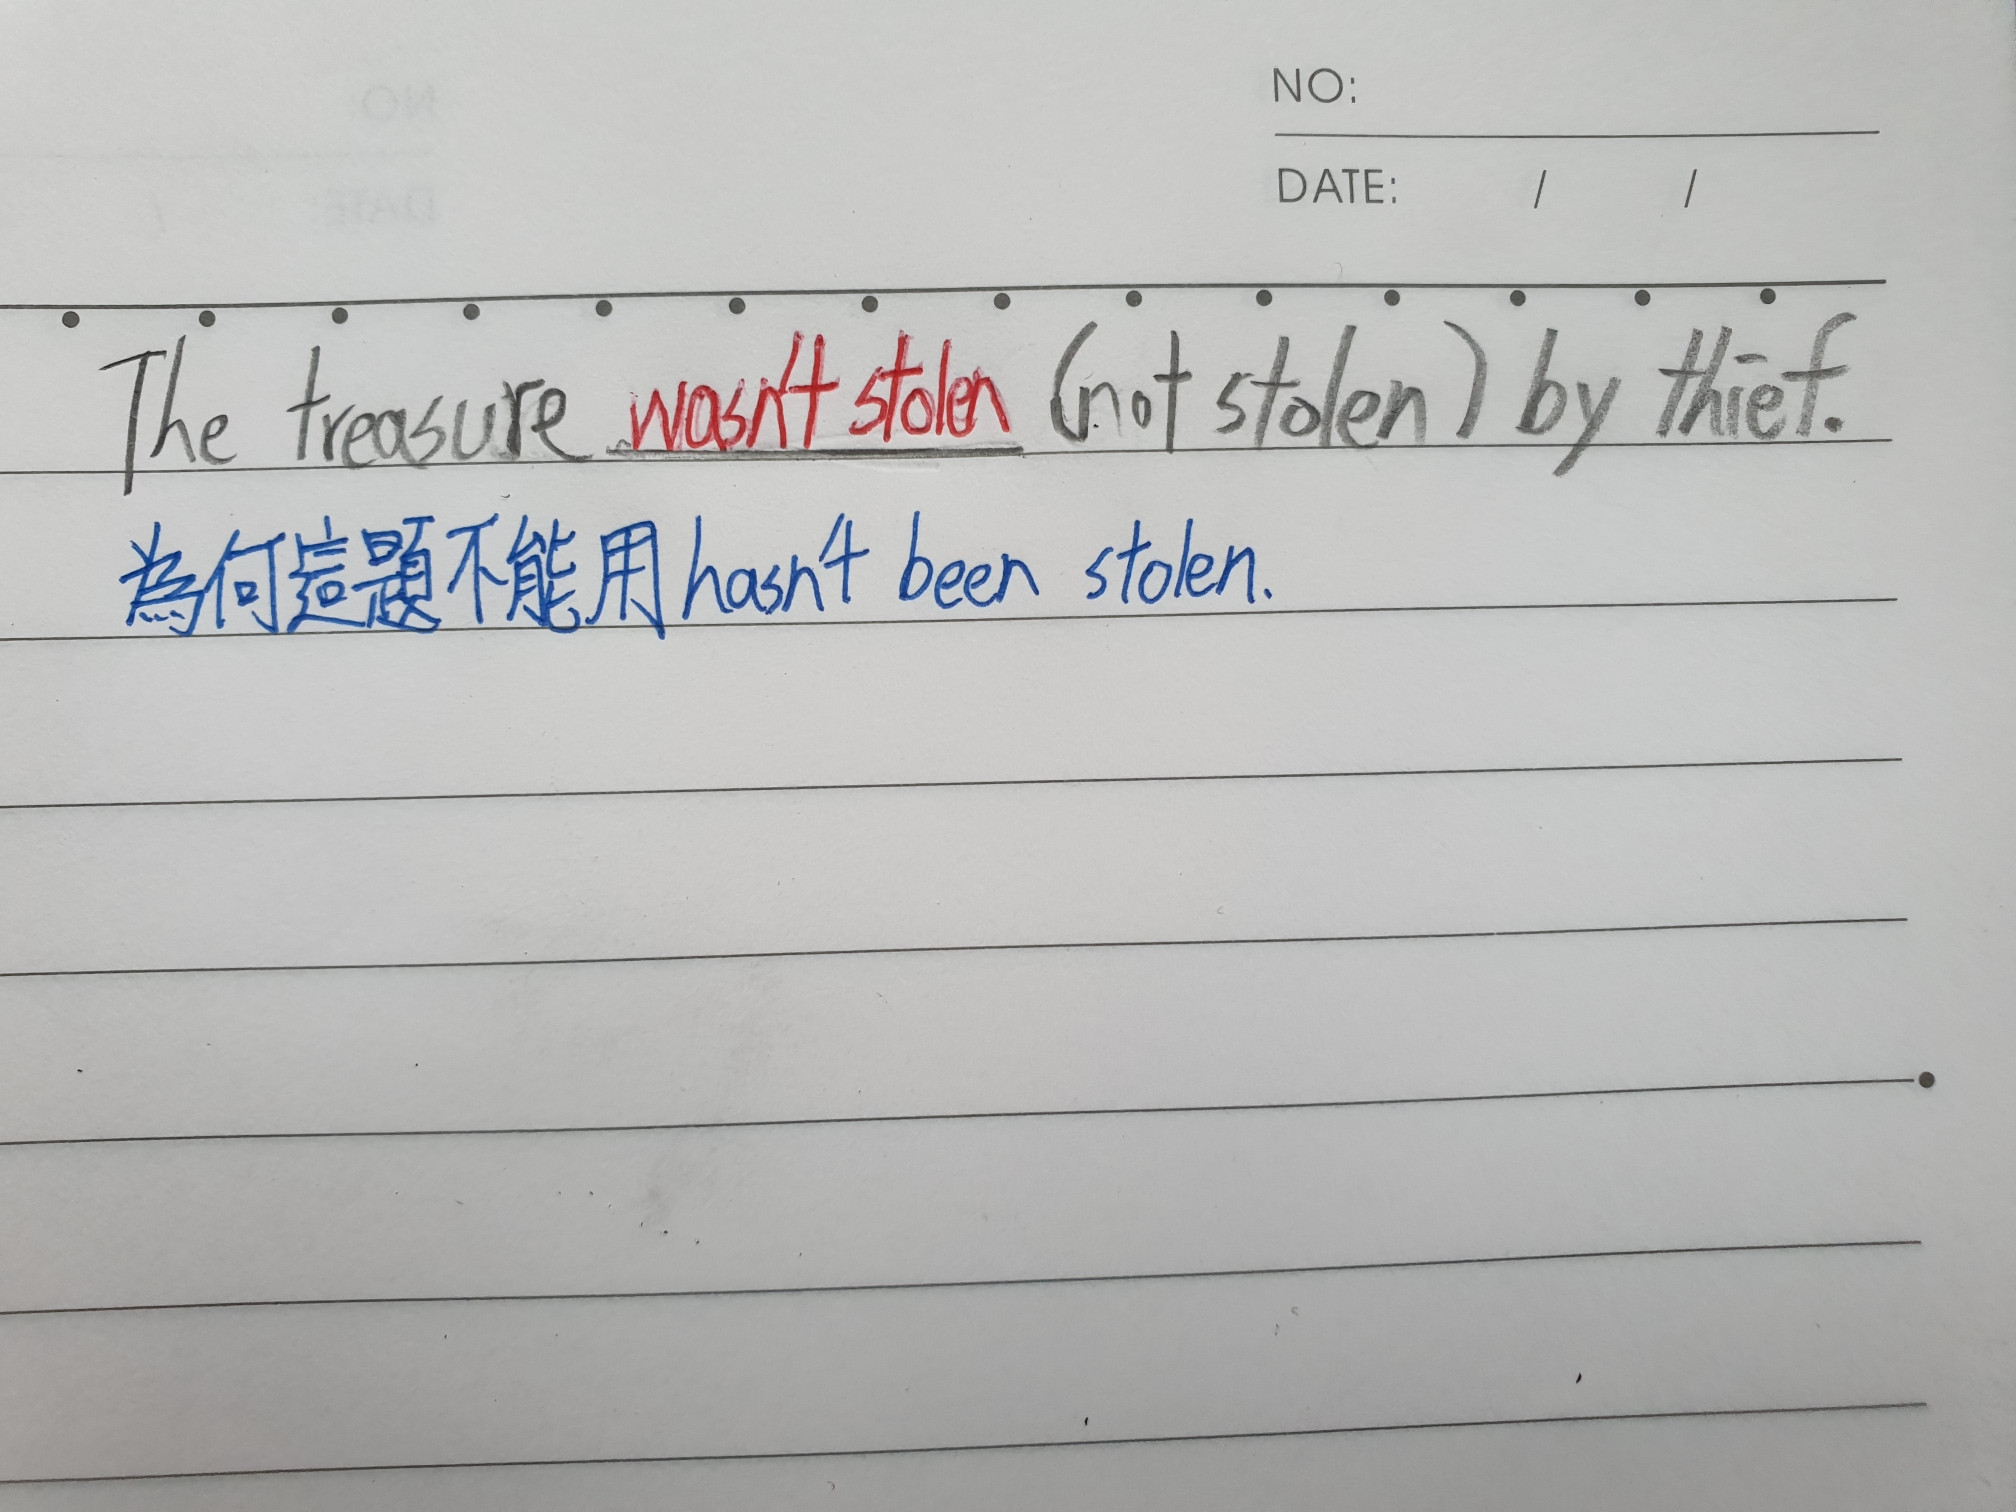 NO:
DATE: / /
The treasure wasn't stolen (not stolen) by thief.
為何這題不能用 hasn't been stolen.